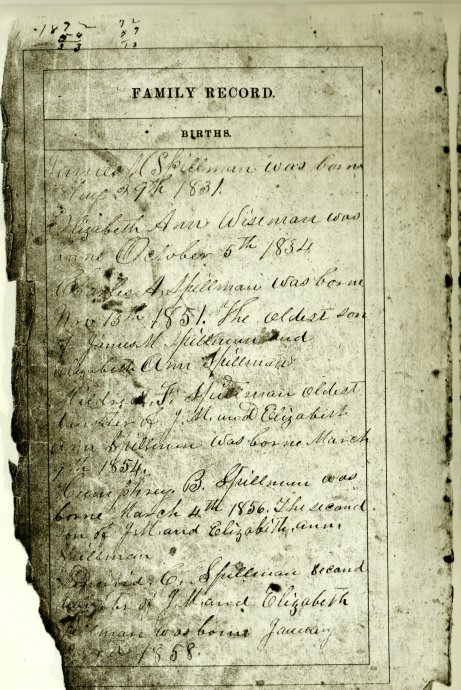 1872
FAMILY RECORD.
BIRTHS.
James M Spillman was borne
29th 1831.
Elizabeth Ann Wiseman was
borne October 5th 1834
A. Spillman was borne
Nov 13th 1851. The oldest son
of James M. Spillman and
Elizabeth Ann Spillman
F. Spillman oldest
daughter of J. M. and Elizabeth
Ann Spillman was borne March
1854.
Humphrey B. Spillman was
borne March 4th 1856. The second
son of J. M. and Elizabeth, ann,
Spillman
C. Spillman second
daughter of J. M. and Elizabeth
Spillman was borne January
1858.